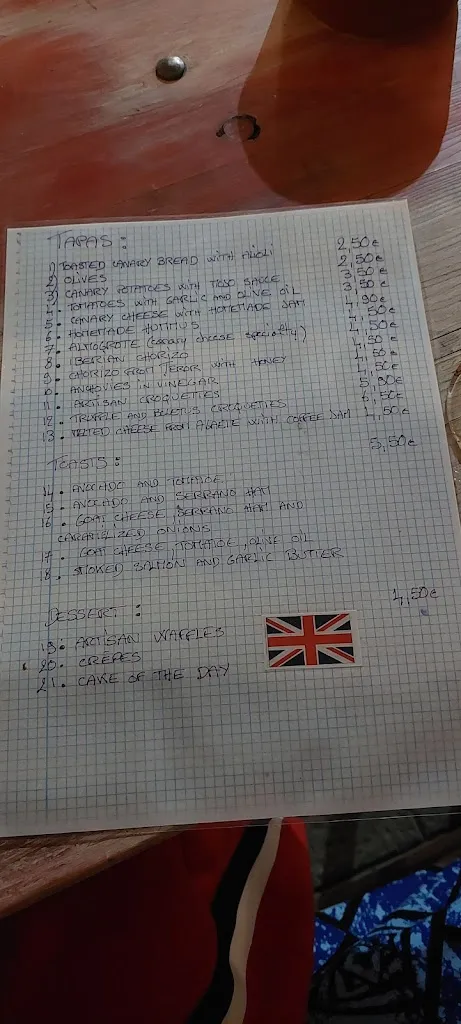 TAPAS :
1) TOASTED CANARY BREAD WITH ALIOLI 2,50€
2) OLIVES 2,50€
3) CANARY POTATOES WITH MOJO SAUCE 3,50€
4. TOMATOES WITH GARLIC AND OLIVE OIL 3,50€
5. CANARY CHEESE WITH HOMEMADE JAM
6. HOMEMADE HUMMUS
7. ALMOGROTE (canary cheese specialty)
8. IBERIAN CHORIZO
9. CHORIZO FROM TEROR WITH HONEY
10. ANCHOVIES IN VINEGAR
11. ARTISAN CROQUETTES
12. TRUFFLE AND BOLETUS CROQUETTES
13. MELTED CHEESE FROM AGAETE WITH COFFEE JAM 4,50€
TOASTS : 5,50€
14. AVOCADO AND TOMATOE
15. AVOCADO AND SERRANO HAM
16. GOAT CHEESE, SERRANO HAM AND
CARAMELIZED ONIONS
17. GOAT CHEESE, TOMATOE, OLIVE OIL
18. SMOKED SALMON AND GARLIC BUTTER
DESSERT : 4,50€
19. ARTISAN WAFFLES
20. CREPES
21. CAKE OF THE DAY